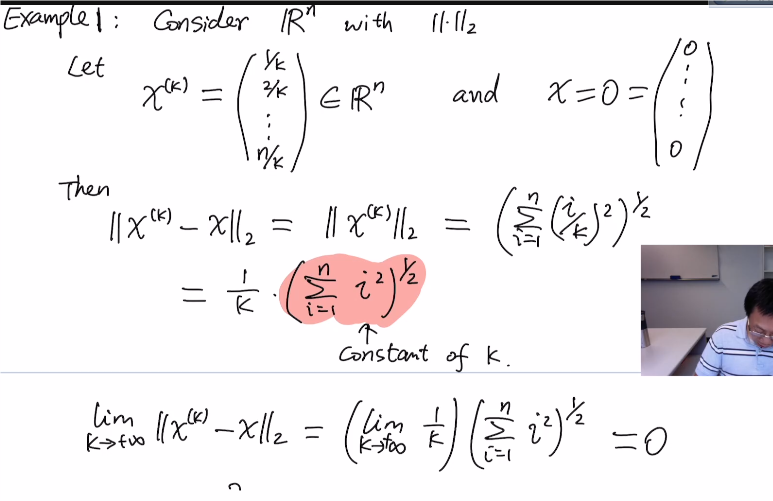 Example 1: Consider ℝⁿ with ‖·‖₂
Let x⁽ᵏ⁾ = (1/k 2/k ⋮ n/k) ∈ ℝⁿ and x = 0 = (0 ⋮ 0)
Then
‖x⁽ᵏ⁾ − x‖₂ = ‖x⁽ᵏ⁾‖₂ = (∑_{i=1}^{n} (i/k)²)^{1/2}
= 1/k · (∑_{i=1}^{n} i²)^{1/2}
↑
constant of k.
lim_{k→+∞} ‖x⁽ᵏ⁾ − x‖₂ = (lim_{k→+∞} 1/k) (∑_{i=1}^{n} i²)^{1/2} = 0